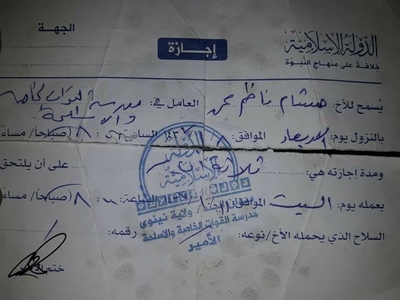 الجهة
الدولة الإسلامية
خلافة على منهاج النبوة
إجازة
يسمح للأخ: هشام ناظم العامل في: مدرسة القوات الخاصة
والاسلحة
بالنزول يوم: الاربعاء الموافق: ١٤٣٧ الساعة: ٨ صباحا/ مساء
ومدة إجازته هي: ثلاثة على أن يلتحق
بعمله يوم: السبت الموافق: الساعة: ٨ صباحا/ مساء
السلاح الذي يحمله الأخ/نوعه: رقمه:
ختم
ولاية نينوى
مدرسة القوات الخاصة والاسلحة
الأمير